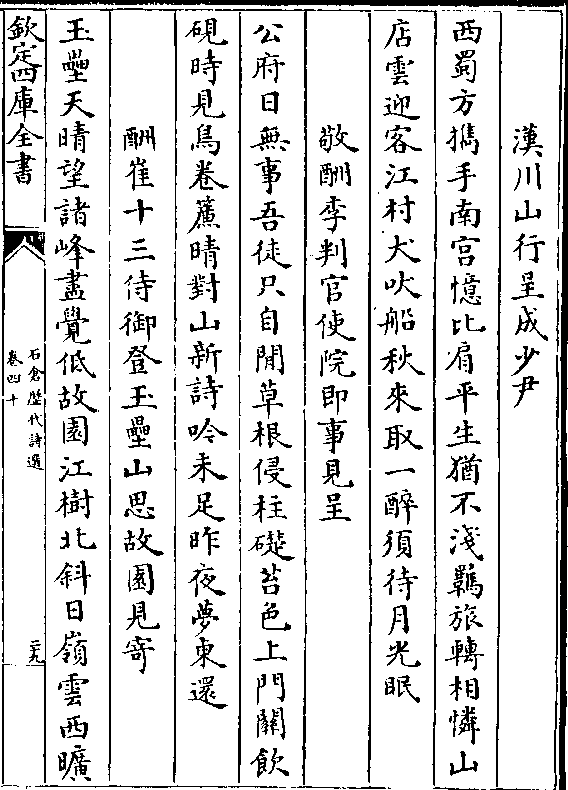 漢川山行呈成少尹
西蜀方攜手南宫憶比肩平生猶不淺羈旅轉相憐山
店雲迎客江村犬吠船秋來取一醉須待月光眠
敬酬李判官使院即事見呈
公府日無事吾徒只自閒草根侵柱礎苔色上門關飲
硯時見鳥卷簾晴對山新詩吟未足昨夜夢東還
酬崔十三侍御登玉壘山思故園見寄
玉壘天晴望諸峰盡覺低故園江樹北斜日嶺雲西曠
欽定四庫全書
石倉歷代詩選
卷四十
二十九